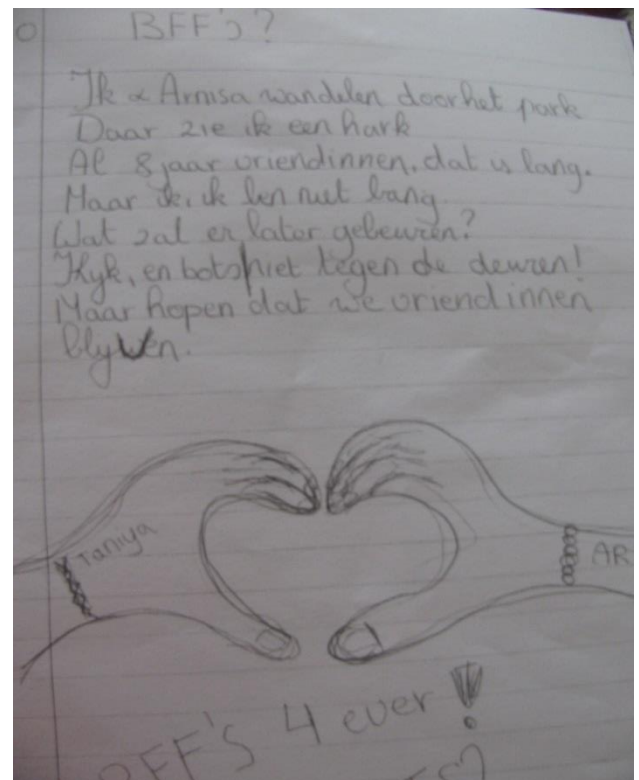 BFF's?
Ik & Arnisa wandelen door het park
Daar zie ik een hark
Al 8 jaar vriendinnen, dat is lang.
Maar ik, ik ben niet bang.
Wat zal er later gebeuren?
Kijk, en bots niet tegen de deuren!
Maar hopen dat we vriendinnen
blijven.
Taniya
AR
BFF'S 4 ever!